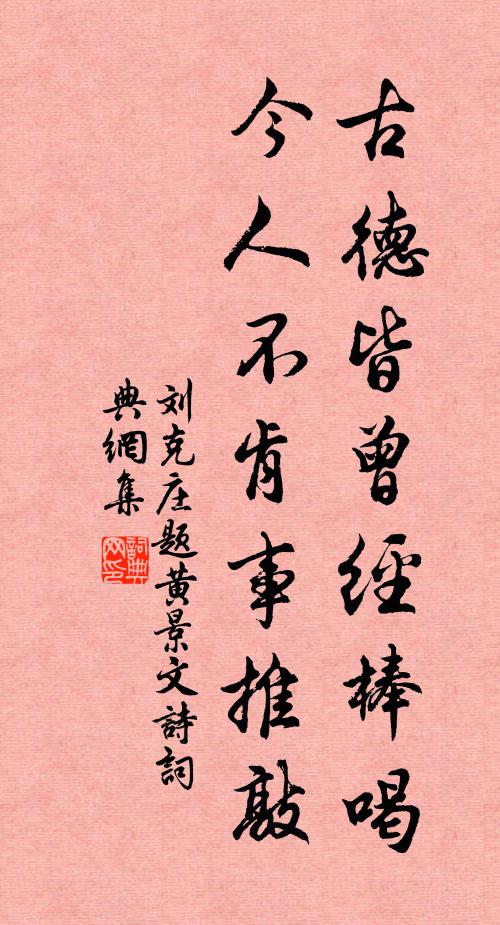 古德皆曾經棒喝
今人不肯事推敲
刘克庄题黄景文詩詞
典網集
詞典
网印